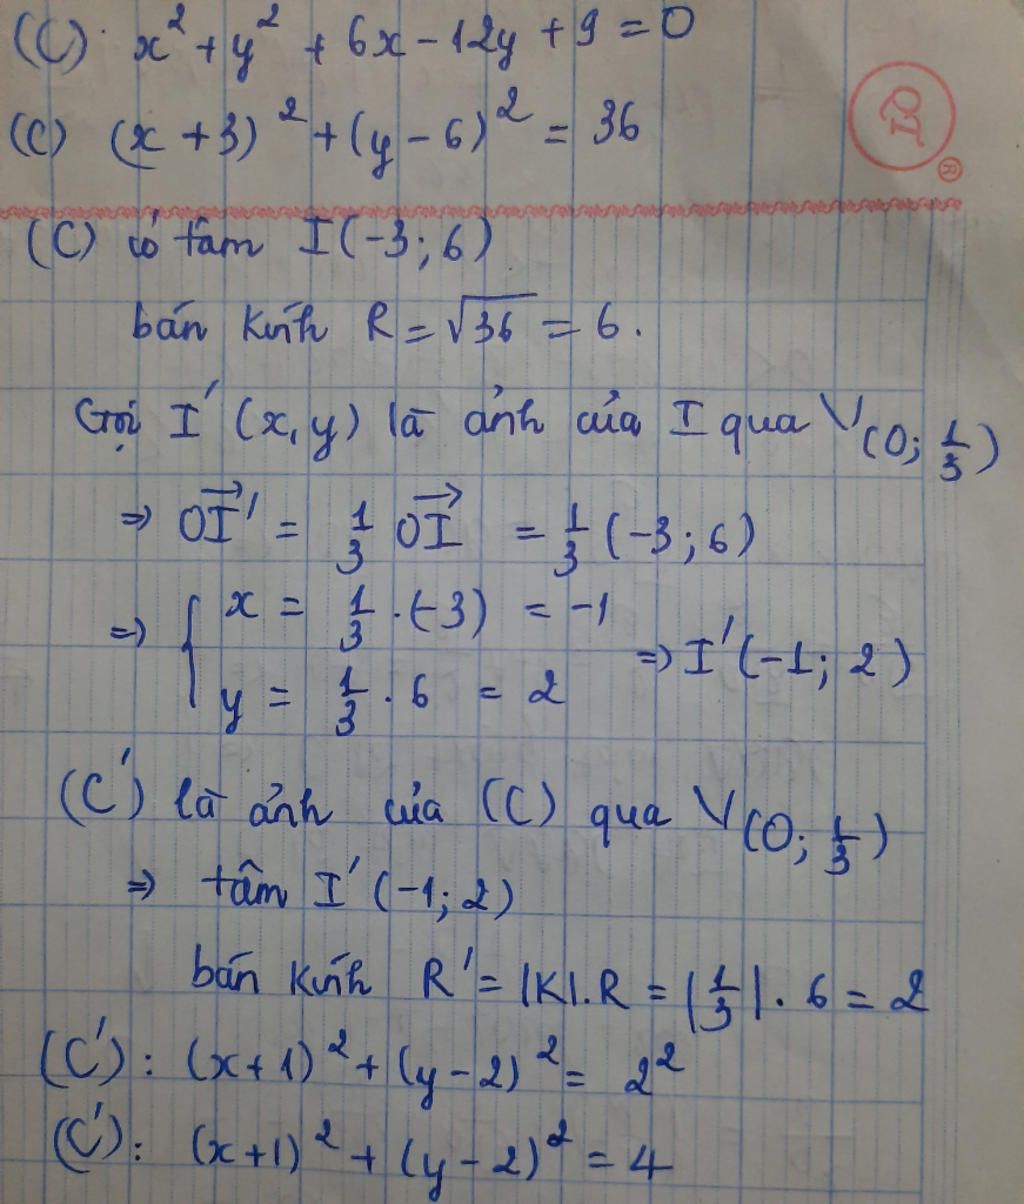 (C): x² + y² + 6x - 12y + 9 = 0
(C) (x + 3)² + (y - 6)² = 36
QT
®
(C) có tâm I(-3; 6)
bán kính R = √36 = 6.
Gọi I'(x, y) là ảnh của I qua V(O; 1/3)
⇒ OI⃗' = 1/3 OI⃗ = 1/3 (-3; 6)
⇒ { x = 1/3 . (-3) = -1
y = 1/3 . 6 = 2 ⇒ I'(-1; 2)
(C') là ảnh của (C) qua V(O; 1/3)
⇒ tâm I'(-1; 2)
bán kính R' = |K|.R = |1/3| . 6 = 2
(C'): (x+1)² + (y - 2)² = 2²
(C'): (x+1)² + (y - 2)² = 4